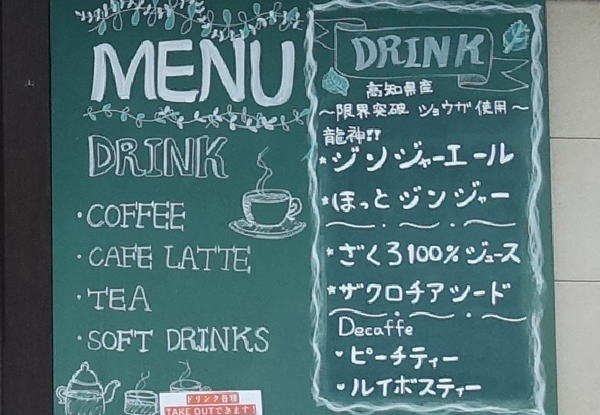 MENU
DRINK
・COFFEE
・CAFE LATTE
・TEA
・SOFT DRINKS
ドリンク各種
TAKE OUTできます!
DRINK
高知県産
～限界突破 ショウガ使用～
龍神!!
*ジンジャーエール
*ほっとジンジャー
*ざくろ100%ジュース
*ザクロチアシード
Decaffe
・ピーチティー
・ルイボスティー